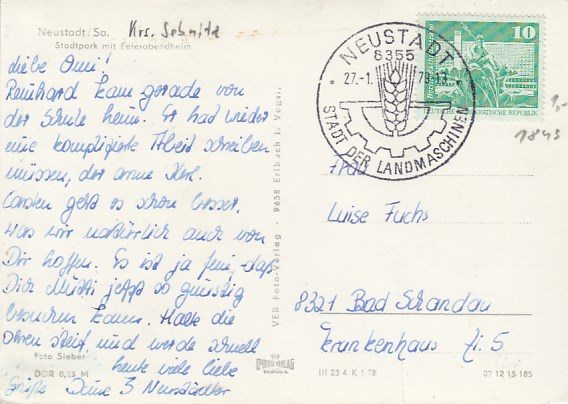 Neustadt/Sa. Krs. Sebnitz
Stadtpark mit Feierabendheim
liebe Omi!
Reinhard kam gerade von
der Schule heim. Er hat wieder
eine komplizierte Arbeit schreiben
müssen, der arme Kerl.
Carsten geht es schon besser,
was wir natürlich auch von
Dir hoffen. Es ist ja fein, daß
Dich Mutti jetzt so günstig
besuchen kann. Halte die
Ohren steif, und werde schnell
heute viele liebe
Grüße Deine 3 Neustädter
Foto Sieber
DDR 0,25 M
VEB Foto-Verlag · 9658 Erlbach i. Vogtl.
NEUSTADT
8355
27.-1. 79-13
STADT DER LANDMASCHINEN
10
1,-
1843
Frau
Luise Fuchs
8321 Bad Schandau
Krankenhaus Zi. 5
III 23 4 K 1 78
07 12 15 185